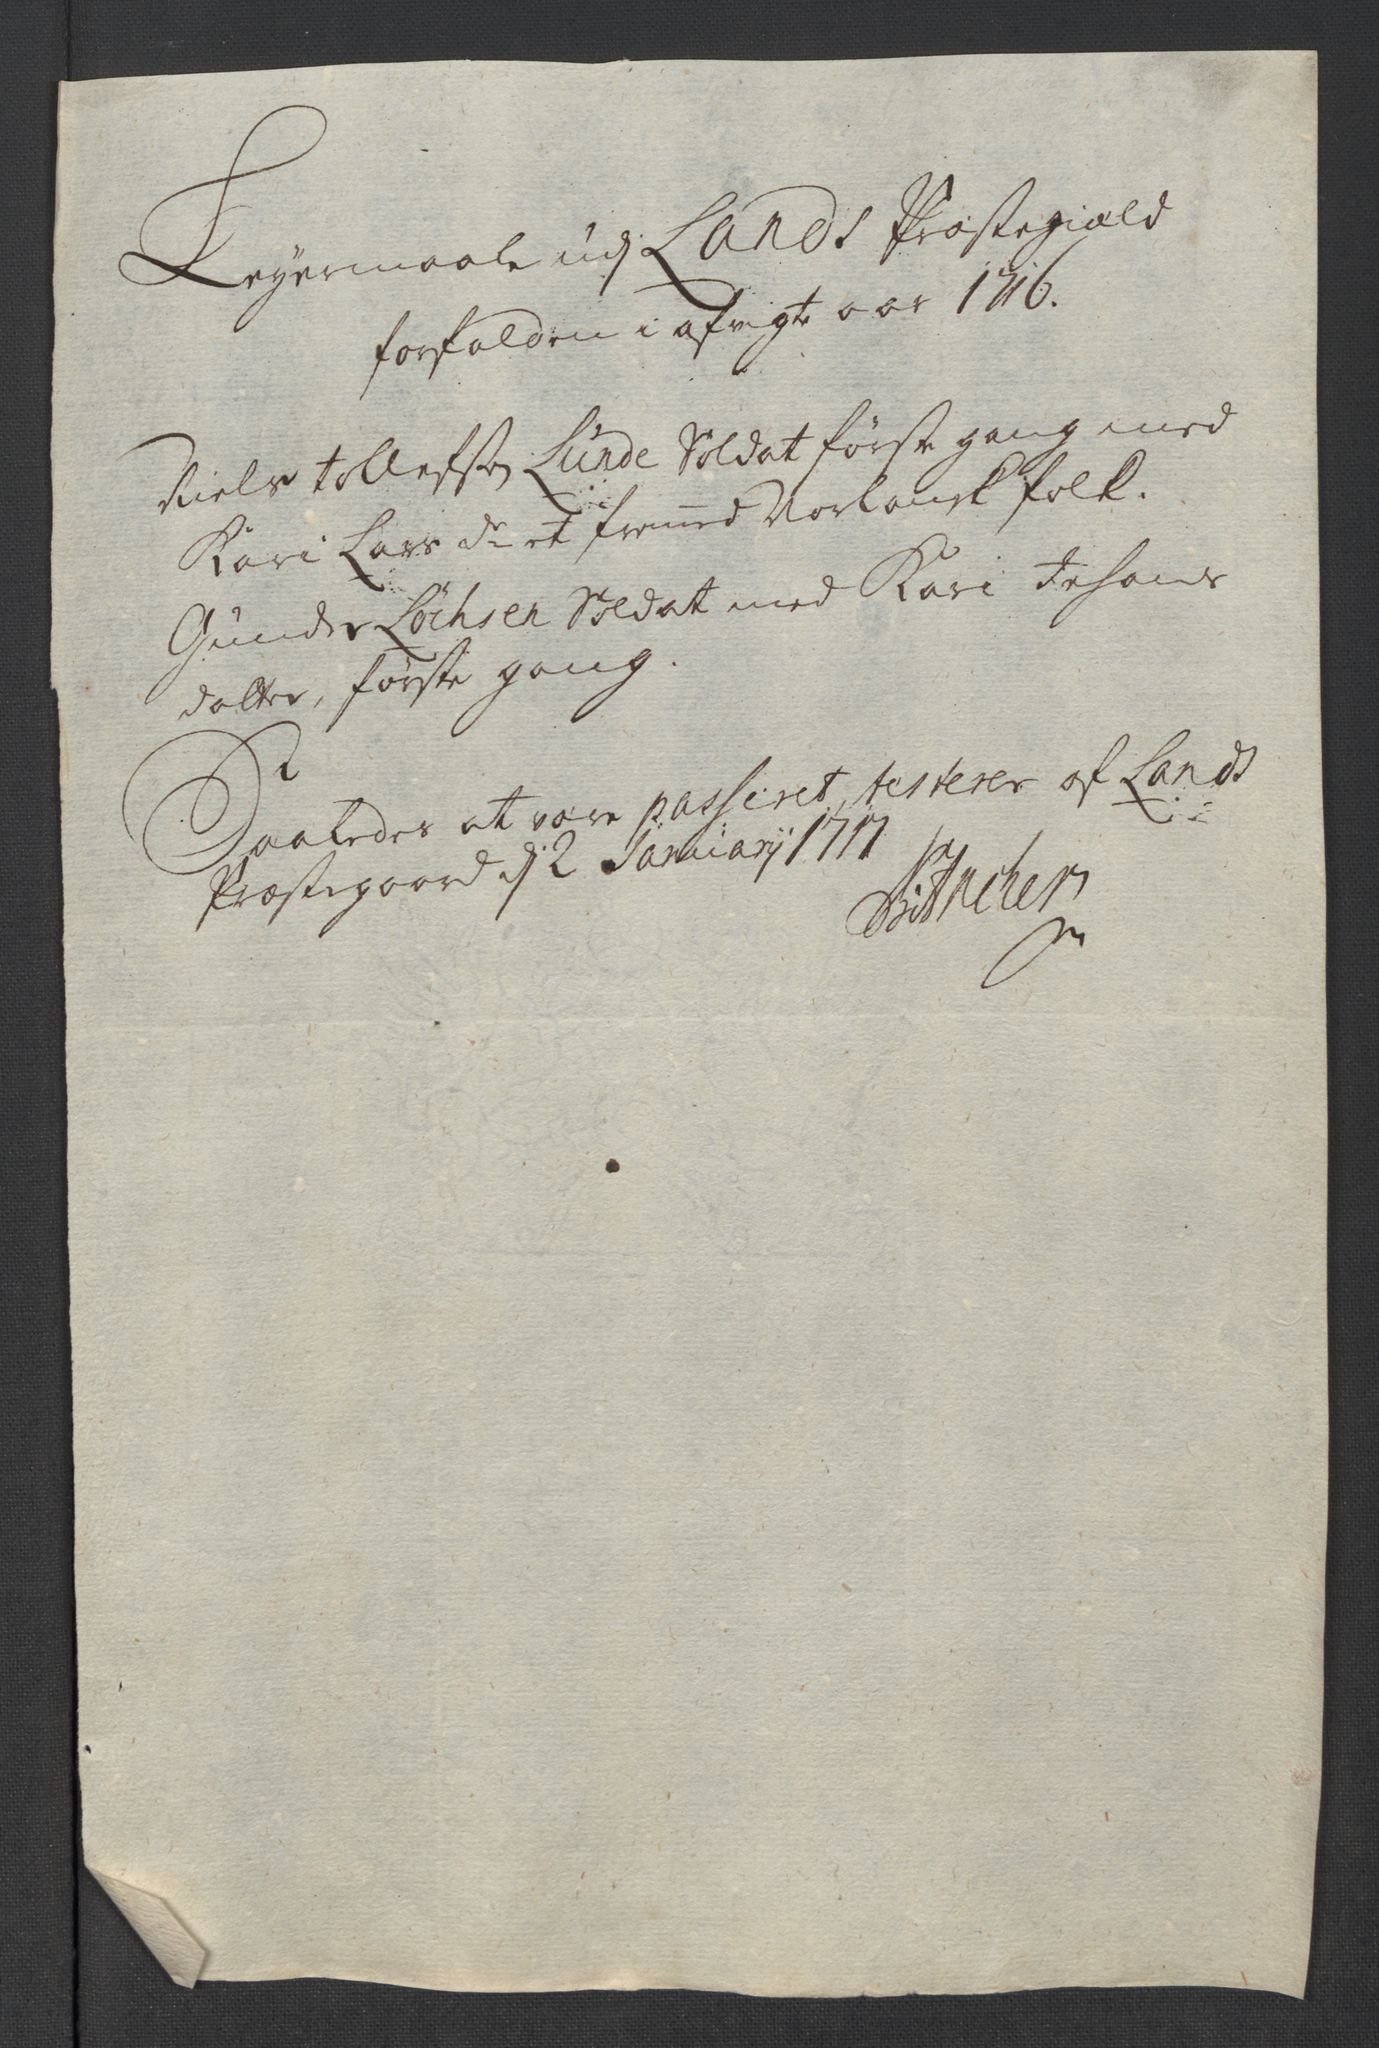 Leyermaale udj Lands Præstegiæld
forfalden i afvigte aar 1716.
Niels tollefsen Lunde Soldat første gang med
Kari Lars d: et fremed Norkansk folk.
Gunder Lochsen Soldat med Kari Johans
datter, første gang.
Saaledes at være passeret, testerer af Lands
Præstegaard dj 2 Januarij 1717